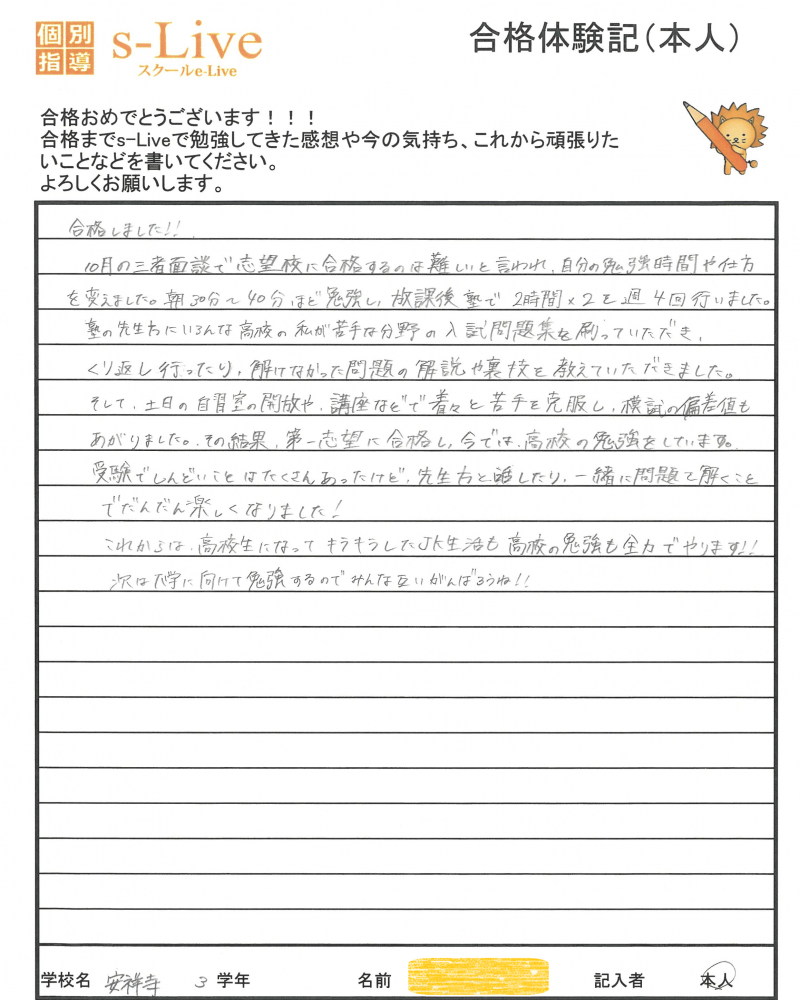 個別
指導
s-Live
スクールe-Live
合格体験記(本人)
合格おめでとうございます!!!
合格までs-Liveで勉強してきた感想や今の気持ち、これから頑張りた
いことなどを書いてください。
よろしくお願いします。
合格しました!!
10月の三者面談で志望校に合格するのは難しいと言われ、自分の勉強時間や仕方
を変えました。朝30分〜40分ほど勉強し、放課後塾で2時間×2を週4回行いました。
塾の先生方にいろんな高校の私が苦手な分野の入試問題集を刷っていただき、
くり返し行ったり、解けなかった問題の解説や裏技を教えていただきました。
そして、土日の自習室の開放や、講座などで着々と苦手を克服し、模試の偏差値も
あがりました。その結果、第一志望に合格し、今では、高校の勉強をしています。
受験でしんどいことはたくさんあったけど、先生方と話したり、一緒に問題を解くこと
でだんだん楽しくなりました!
これからは、高校生になってキラキラしたJK生活も高校の勉強も全力でやります!!
次は大学に向けて勉強するのでみんな互いがんばろうね!!
学校名 安祥寺 3 学年 名前 記入者 本人